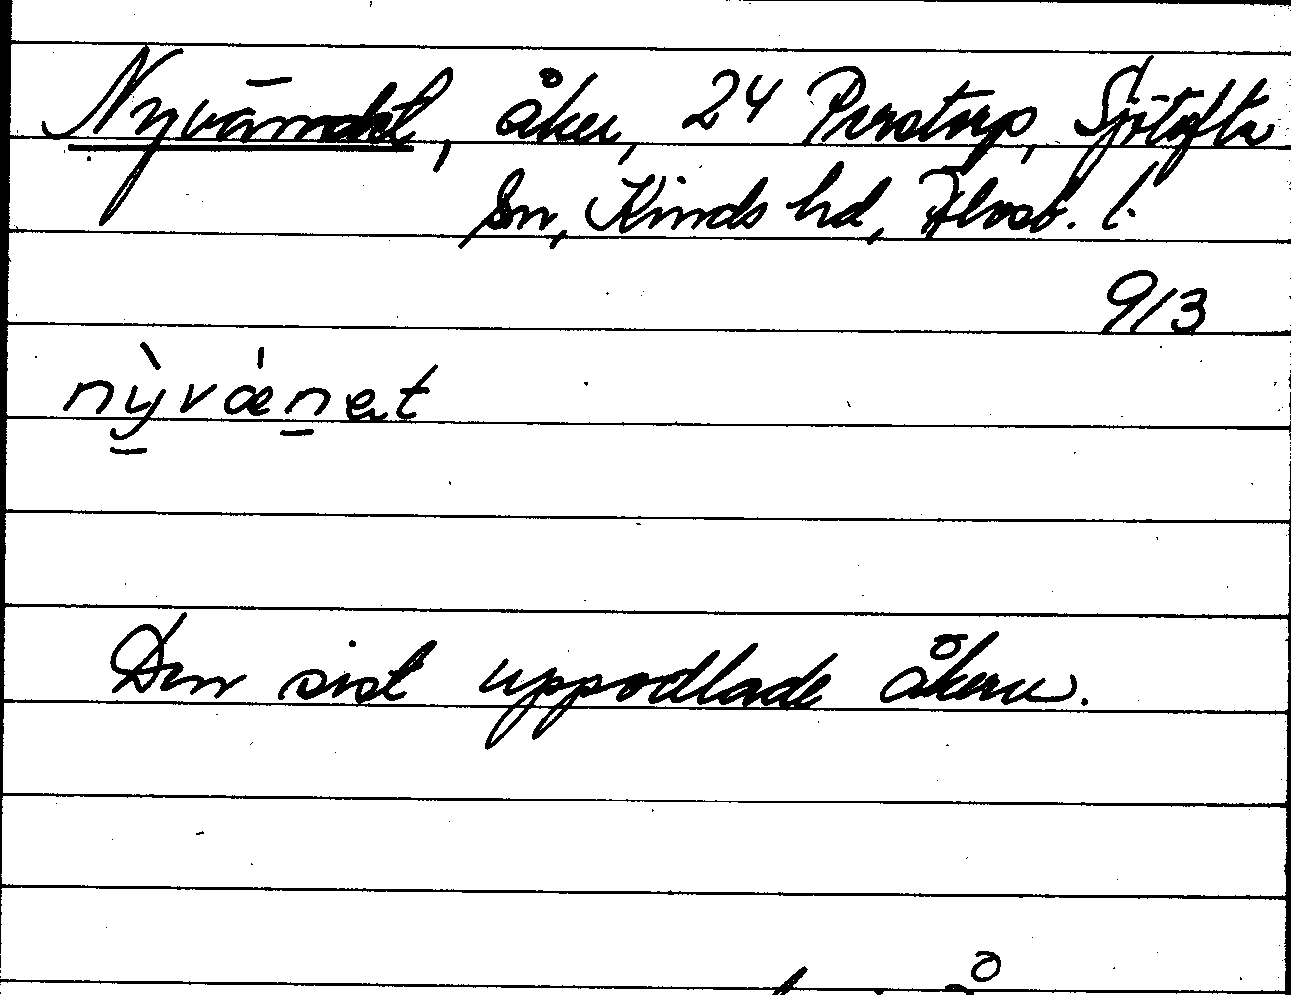 Nyvändet, åker, 24 Perstorp, Sjötofta
sn, Kinds hd, Älvsb. l.
9/3
nỳvǽnet
Den sist uppodlade åkern.